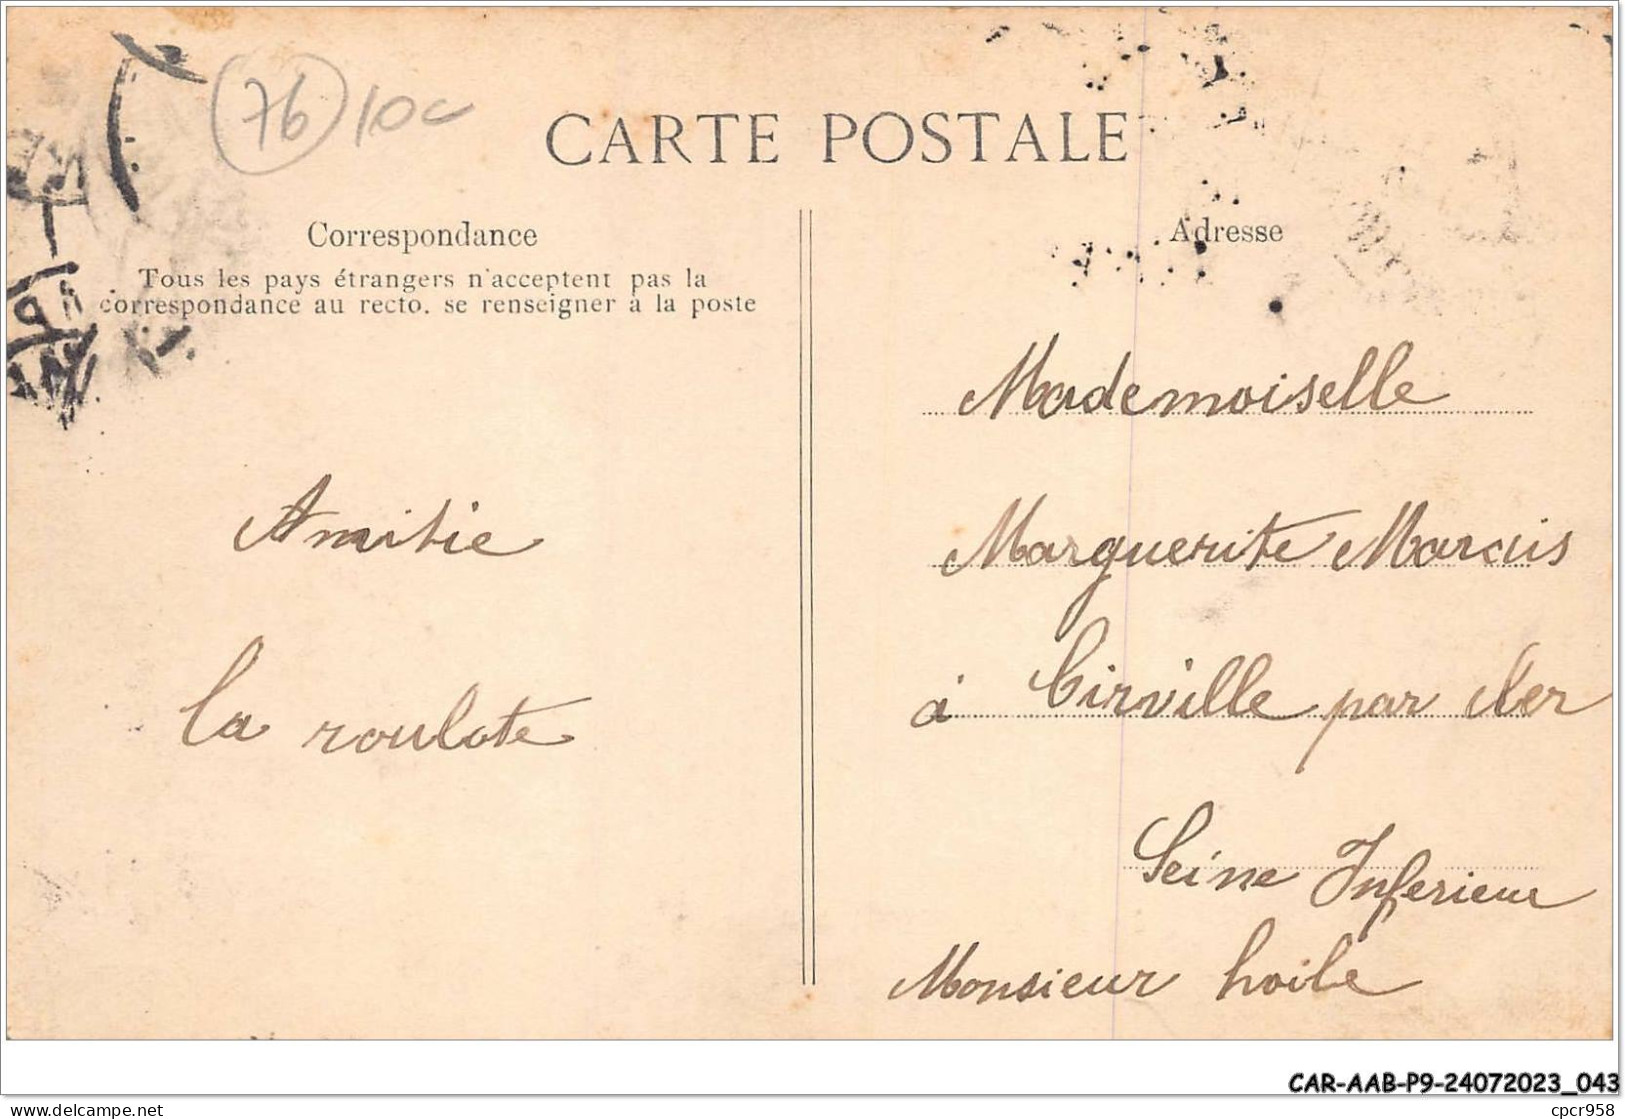 76 10c
CARTE POSTALE
Correspondance
Tous les pays étrangers n'acceptent pas la
correspondance au recto. se renseigner à la poste
Amitie
la roulote
Adresse
Mademoiselle
Marguerite Marais
à Cirville par
Seine Inferieur
Monsieur hoile
CAR-AAB-P9-24072023_043
delcampe.net
cpcr958